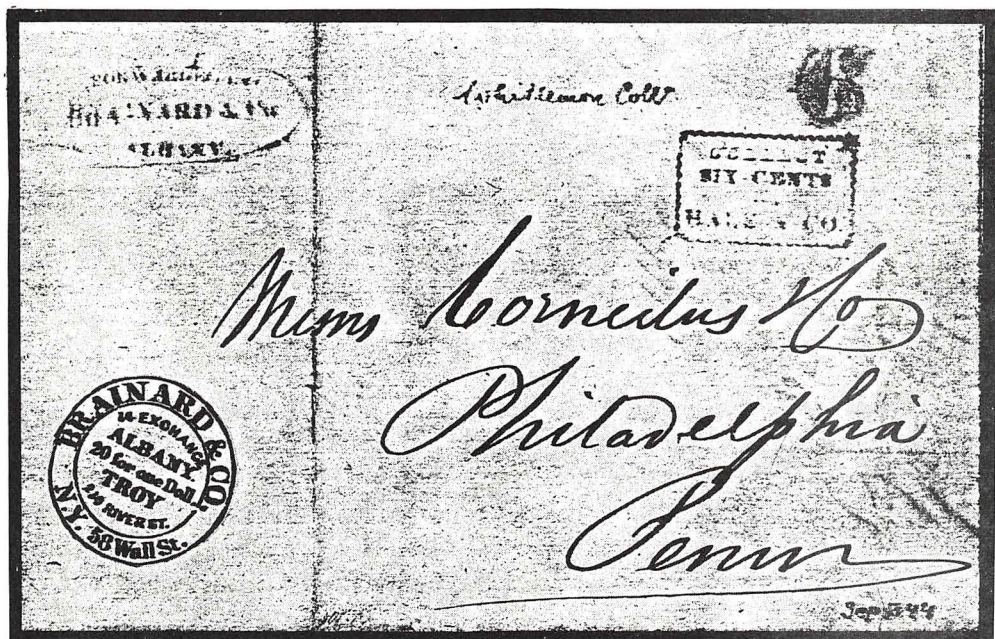 BRAINARD & CO
ALBANY.
6
COLLECT
SIX CENTS
HALE & CO
Messrs Cornelius & Co
Philadelphia
Penn
BRAINARD & CO.
14 EXCHANGE
ALBANY
20 for one Doll.
TROY
RIVER ST.
N.Y. 58 Wall St.